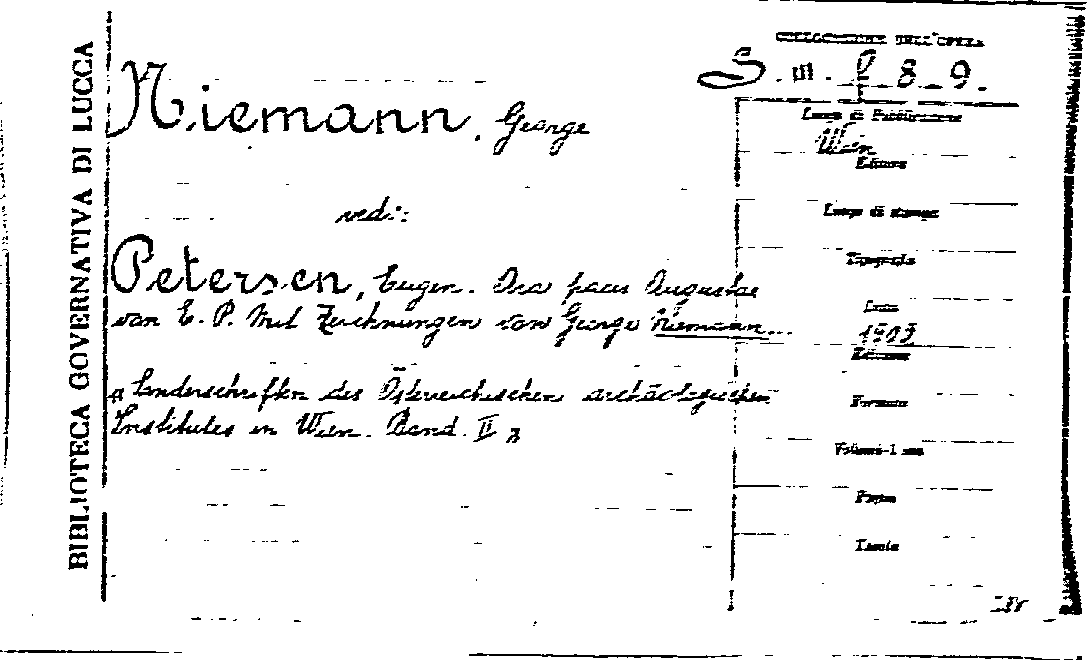 BIBLIOTECA GOVERNATIVA DI LUCCA
COLLOCAZIONE DELL'OPERA
S. III. f 8-9.
Niemann, George
Luogo di Pubblicazione
Wien
Editore
vedi:
Luogo di stampa
Tipografia
Petersen, Eugen. Ara pacis Augustae
von E. P. Mit Zeichnungen von George Niemann...
1903
Edizione
« Sonderschriften des Österreichischen archäologischen
Institutes in Wien. Band. II »
Formato
Volumi-I
Pagine
Tavole